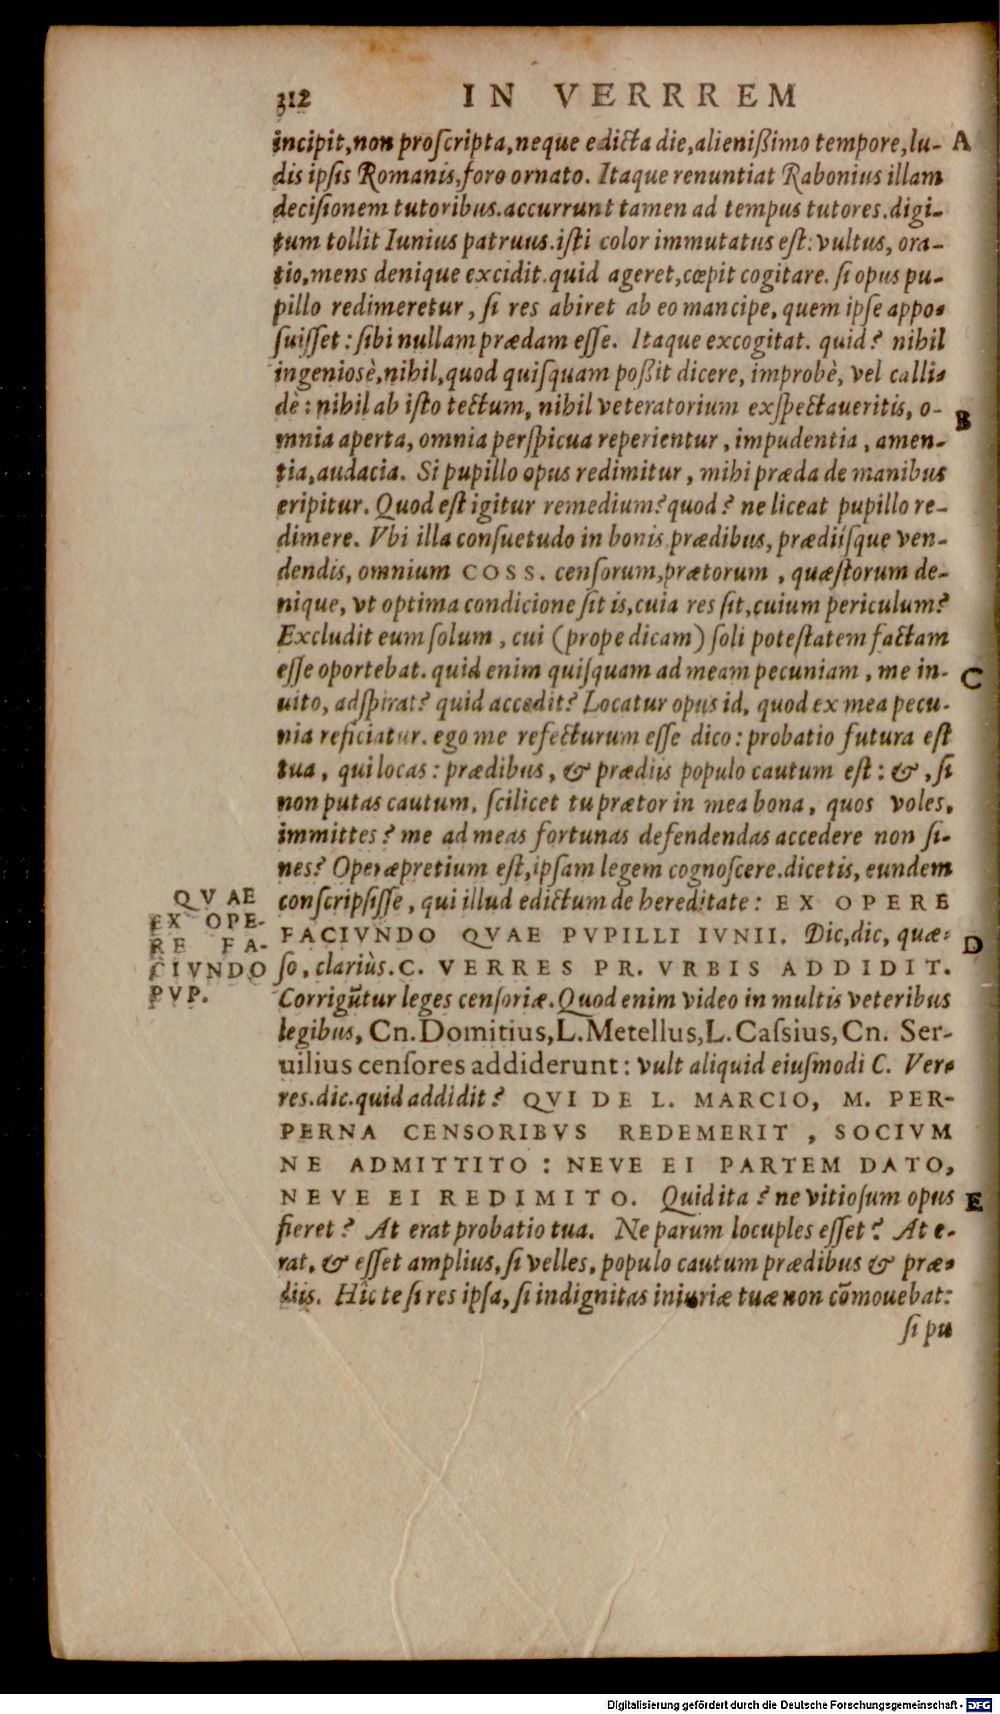 312 IN VERRREM
incipit, non proſcripta, neque edicta die, alieniſsimo tempore, lu- A
dis ipſis Romanis, foro ornato. Itaque renuntiat Rabonius illam
deciſionem tutoribus. accurrunt tamen ad tempus tutores. digi-
tum tollit Iunius patruus. iſti color immutatus eſt: vultus, ora-
tio, mens denique excidit. quid ageret, cœpit cogitare. ſi opus pu-
pillo redimeretur, ſi res abiret ab eo mancipe, quem ipſe appo-
ſuiſſet: ſibi nullam prædam eſſe. Itaque excogitat. quid? nihil
ingenioſè, nihil, quod quiſquam poßit dicere, improbè, vel calli-
dè: nihil ab iſto tectum, nihil veteratorium exſpectaueritis, o- B
mnia aperta, omnia perſpicua reperientur, impudentia, amen-
tia, audacia. Si pupillo opus redimitur, mihi præda de manibus
eripitur. Quod eſt igitur remedium? quod? ne liceat pupillo re-
dimere. Vbi illa conſuetudo in bonis prædibus, prædiiſque ven-
dendis, omnium COSS. cenſorum, prætorum, quæſtorum de-
nique, vt optima condicione ſit is, cuia res ſit, cuium periculum?
Excludit eum ſolum, cui (prope dicam) ſoli poteſtatem factam
eſſe oportebat. quid enim quiſquam ad meam pecuniam, me in- C
uito, adſpirat? quid accedit? Locatur opus id, quod ex mea pecu-
nia reficiatur. ego me refecturum eſſe dico: probatio futura eſt
tua, qui locas: prædibus, & prædiis populo cautum eſt: &, ſi
non putas cautum, ſcilicet tu prætor in mea bona, quos voles,
immittes? me ad meas fortunas defendendas accedere non ſi-
nes? Operæpretium eſt, ipſam legem cognoſcere. dicetis, eundem
conſcripſiſſe, qui illud edictum de hereditate: EX OPERE
FACIVNDO QVAE PVPILLI IVNII. Dic, dic, quæ- D
ſo, clariùs. C. VERRES PR. VRBIS ADDIDIT.
QVAE
EX OPE-
RE FA-
CIVNDO
PVP.
Corrigūtur leges cenſoriæ. Quod enim video in multis veteribus
legibus, Cn. Domitius, L. Metellus, L. Caſsius, Cn. Ser-
uilius cenſores addiderunt: vult aliquid eiuſmodi C. Ver-
res. dic. quid addidit? QVI DE L. MARCIO, M. PER-
PERNA CENSORIBVS REDEMERIT, SOCIVM
NE ADMITTITO: NEVE EI PARTEM DATO,
NEVE EI REDIMITO. Quid ita? ne vitioſum opus E
fieret? At erat probatio tua. Ne parum locuples eſſet? At e-
rat, & eſſet amplius, ſi velles, populo cautum prædibus & præ-
diis. Hîc te ſi res ipſa, ſi indignitas iniuriæ tuæ non cōmouebat:
ſi pu
Digitalisierung gefördert durch die Deutsche Forschungsgemeinschaft - DFG